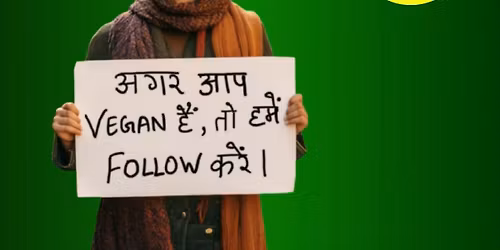 अगर आप
VEGAN हैं, तो हमें
FOLLOW करें।